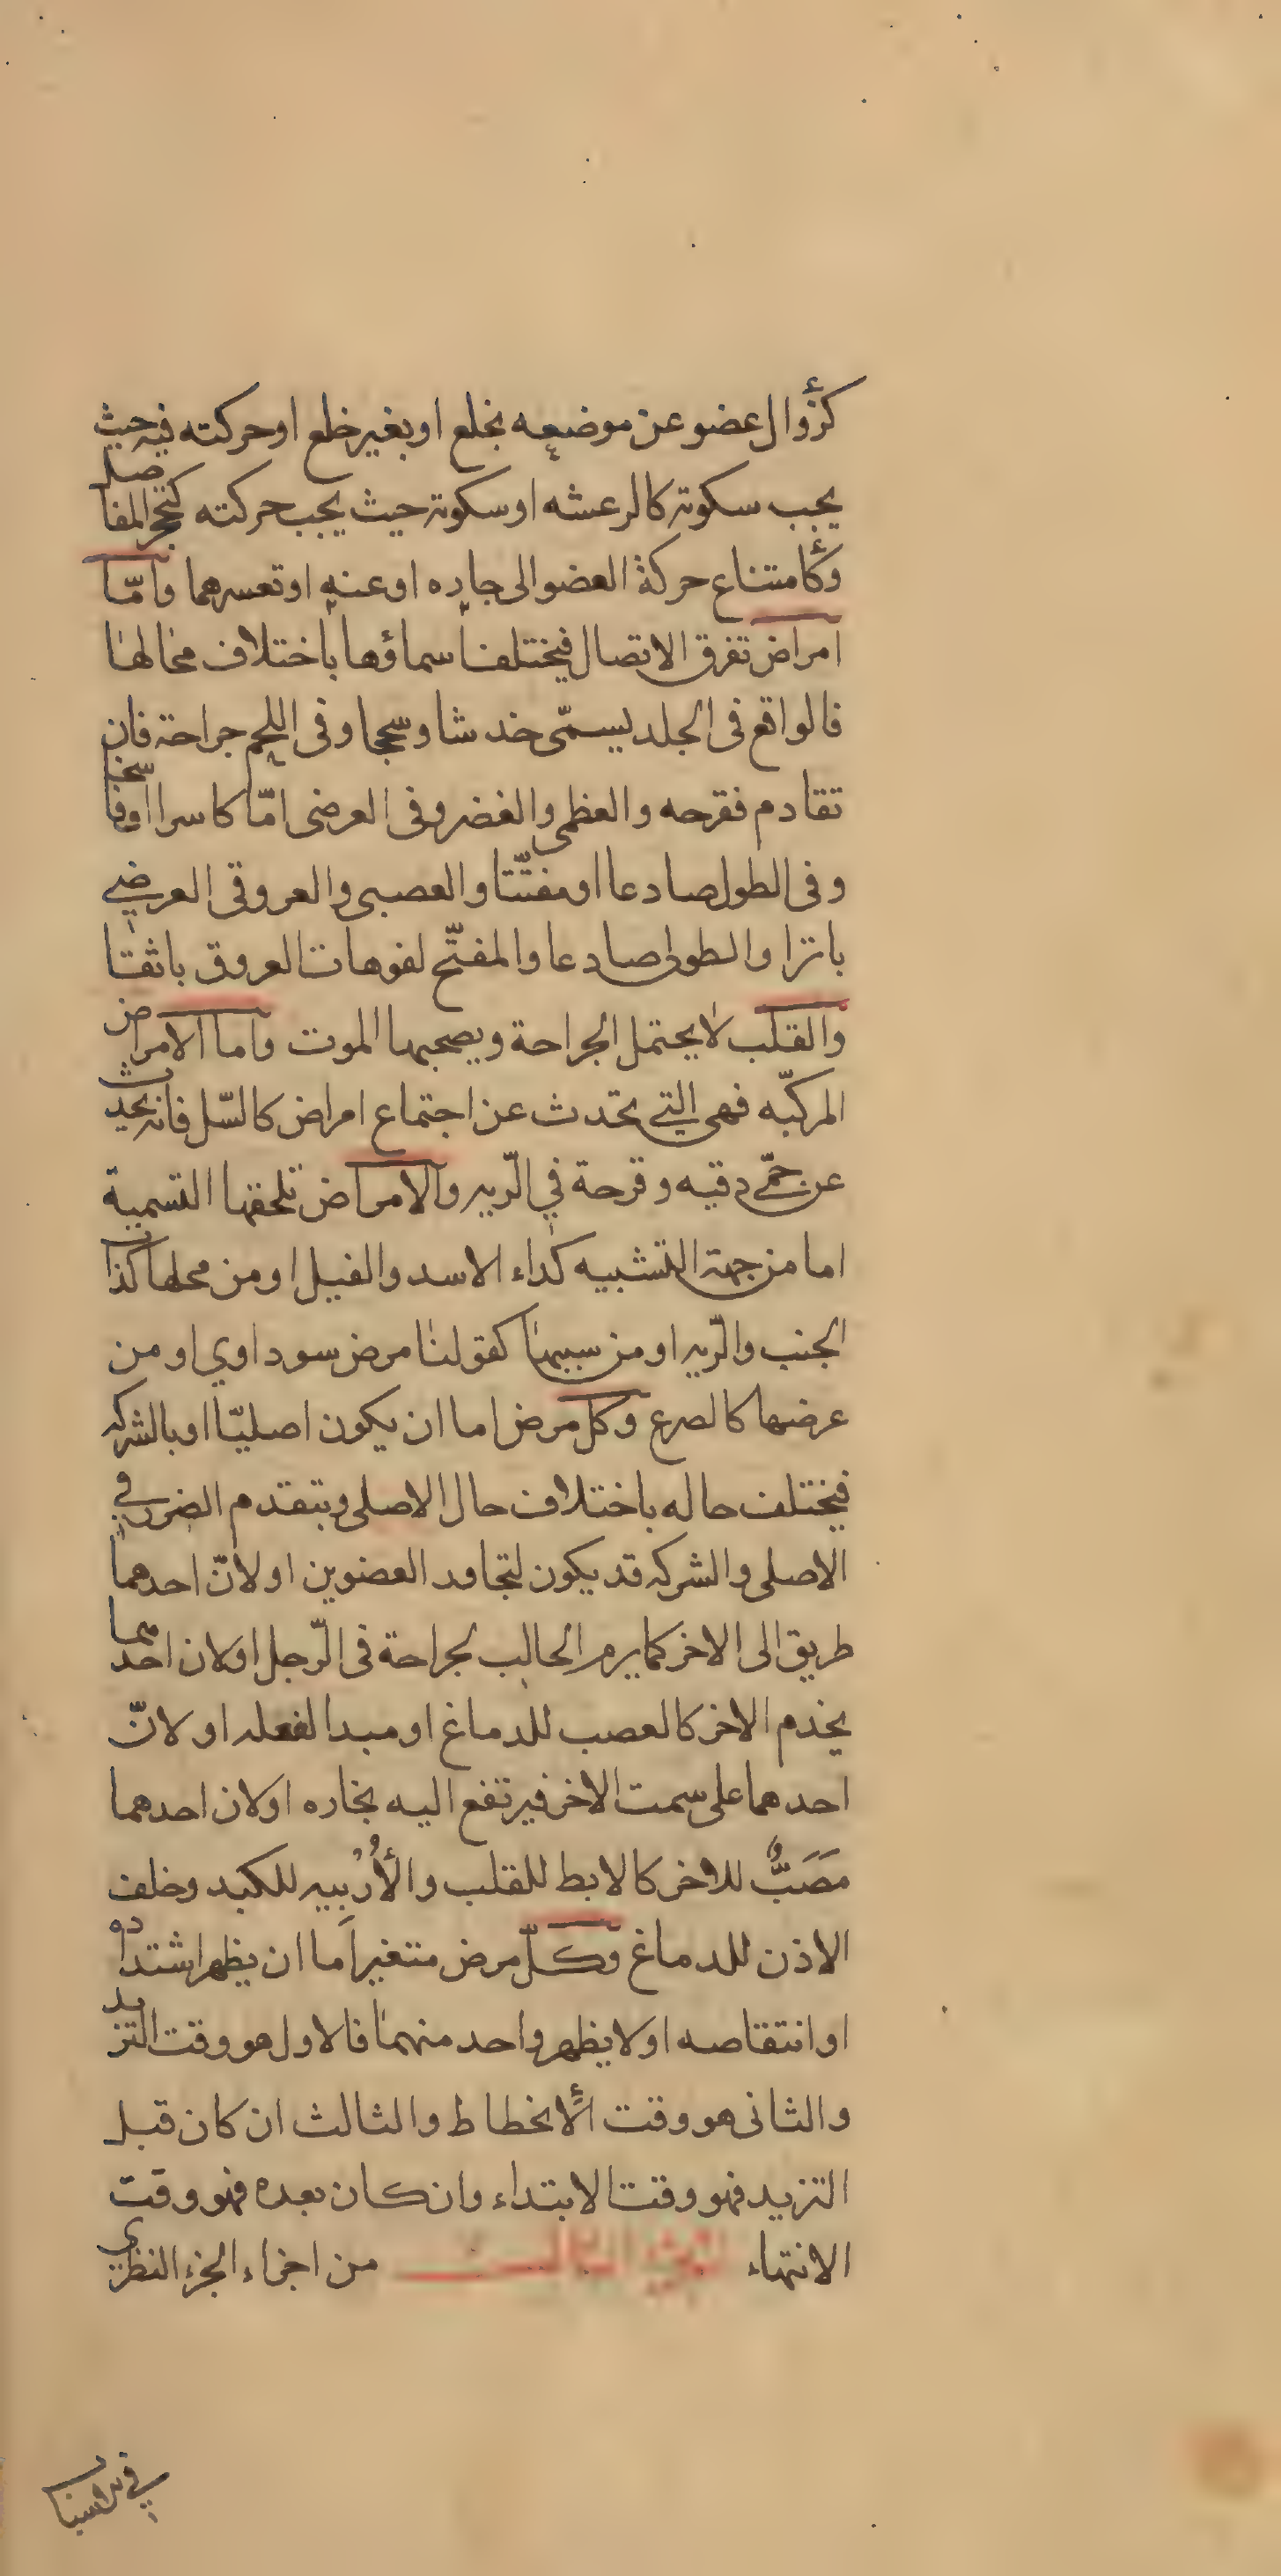 كزوال عضو عن موضعه بخلع او بغير خلع او حركته فيه حيث
يجب سكونه كالرعشه او سكونه حيث يجب حركته كتحجر المفاصل
وكأمتناع حركة العضو الى جاره او عنه او تعسرهما وامّا
امراض تفرق الاتصال فيختلف اسماؤها باختلاف محالها
فالواقع فى الجلد يسمّى خدشا وسحجا وفى اللحم جراحة فان
تقادم فقرحه والعظمى والغضروفى العرضى امّا كاسرا او فاسخا
وفى الطول صادعا او مفتّتا والعصبى والعروقى العرضي
باترا والطولى صادعا والمفتّح لفوهات العروق باثقا
والقلب لا يحتمل الجراحة ويصحبها الموت واما الامراض
المركبّه فهى التي تحدث عن اجتماع امراض كالسّل فانه يحدث
عن حمّى دقيه وقرحة في الرّيه والامراض تلحقها التسمية
اما من جهة التشبيه كداء الاسد والفيل او من محلها كذات
الجنب والرّيه او من سببها كقولنا مرض سوداوي او من
عرضها كالصرع وكل مرض اما ان يكون اصليّا او بالشركه
فيختلف حاله باختلاف حال الاصلى ويتقدم الضرر في
الاصلى والشركه قد يكون لتجاور العضوين او لانّ احدهما
طريق الى الاخر كما يرم الحالب لجراحة فى الرّجل او لان احدهما
يخدم الاخر كالعصب للدماغ او مبدا لفعله او لانّ
احدهما على سمت الاخر فيرتفع اليه بخاره او لان احدهما
مَصَبٌّ للاخر كالابط للقلب والأُرْبيه للكبد وخلف
الاذن للدماغ وكلّ مرض متغير اما ان يظهر اشتداده
او انتقاصه او لا يظهر واحد منهما فالاول هو وقت التزيد
والثانى هو وقت الانحطاط والثالث ان كان قبل
التزيد فهو وقت الابتداء وان كان بعده فهو وقت
الانتهاء الجزء الثالث من اجزاء الجزء النظري
في الاسباب